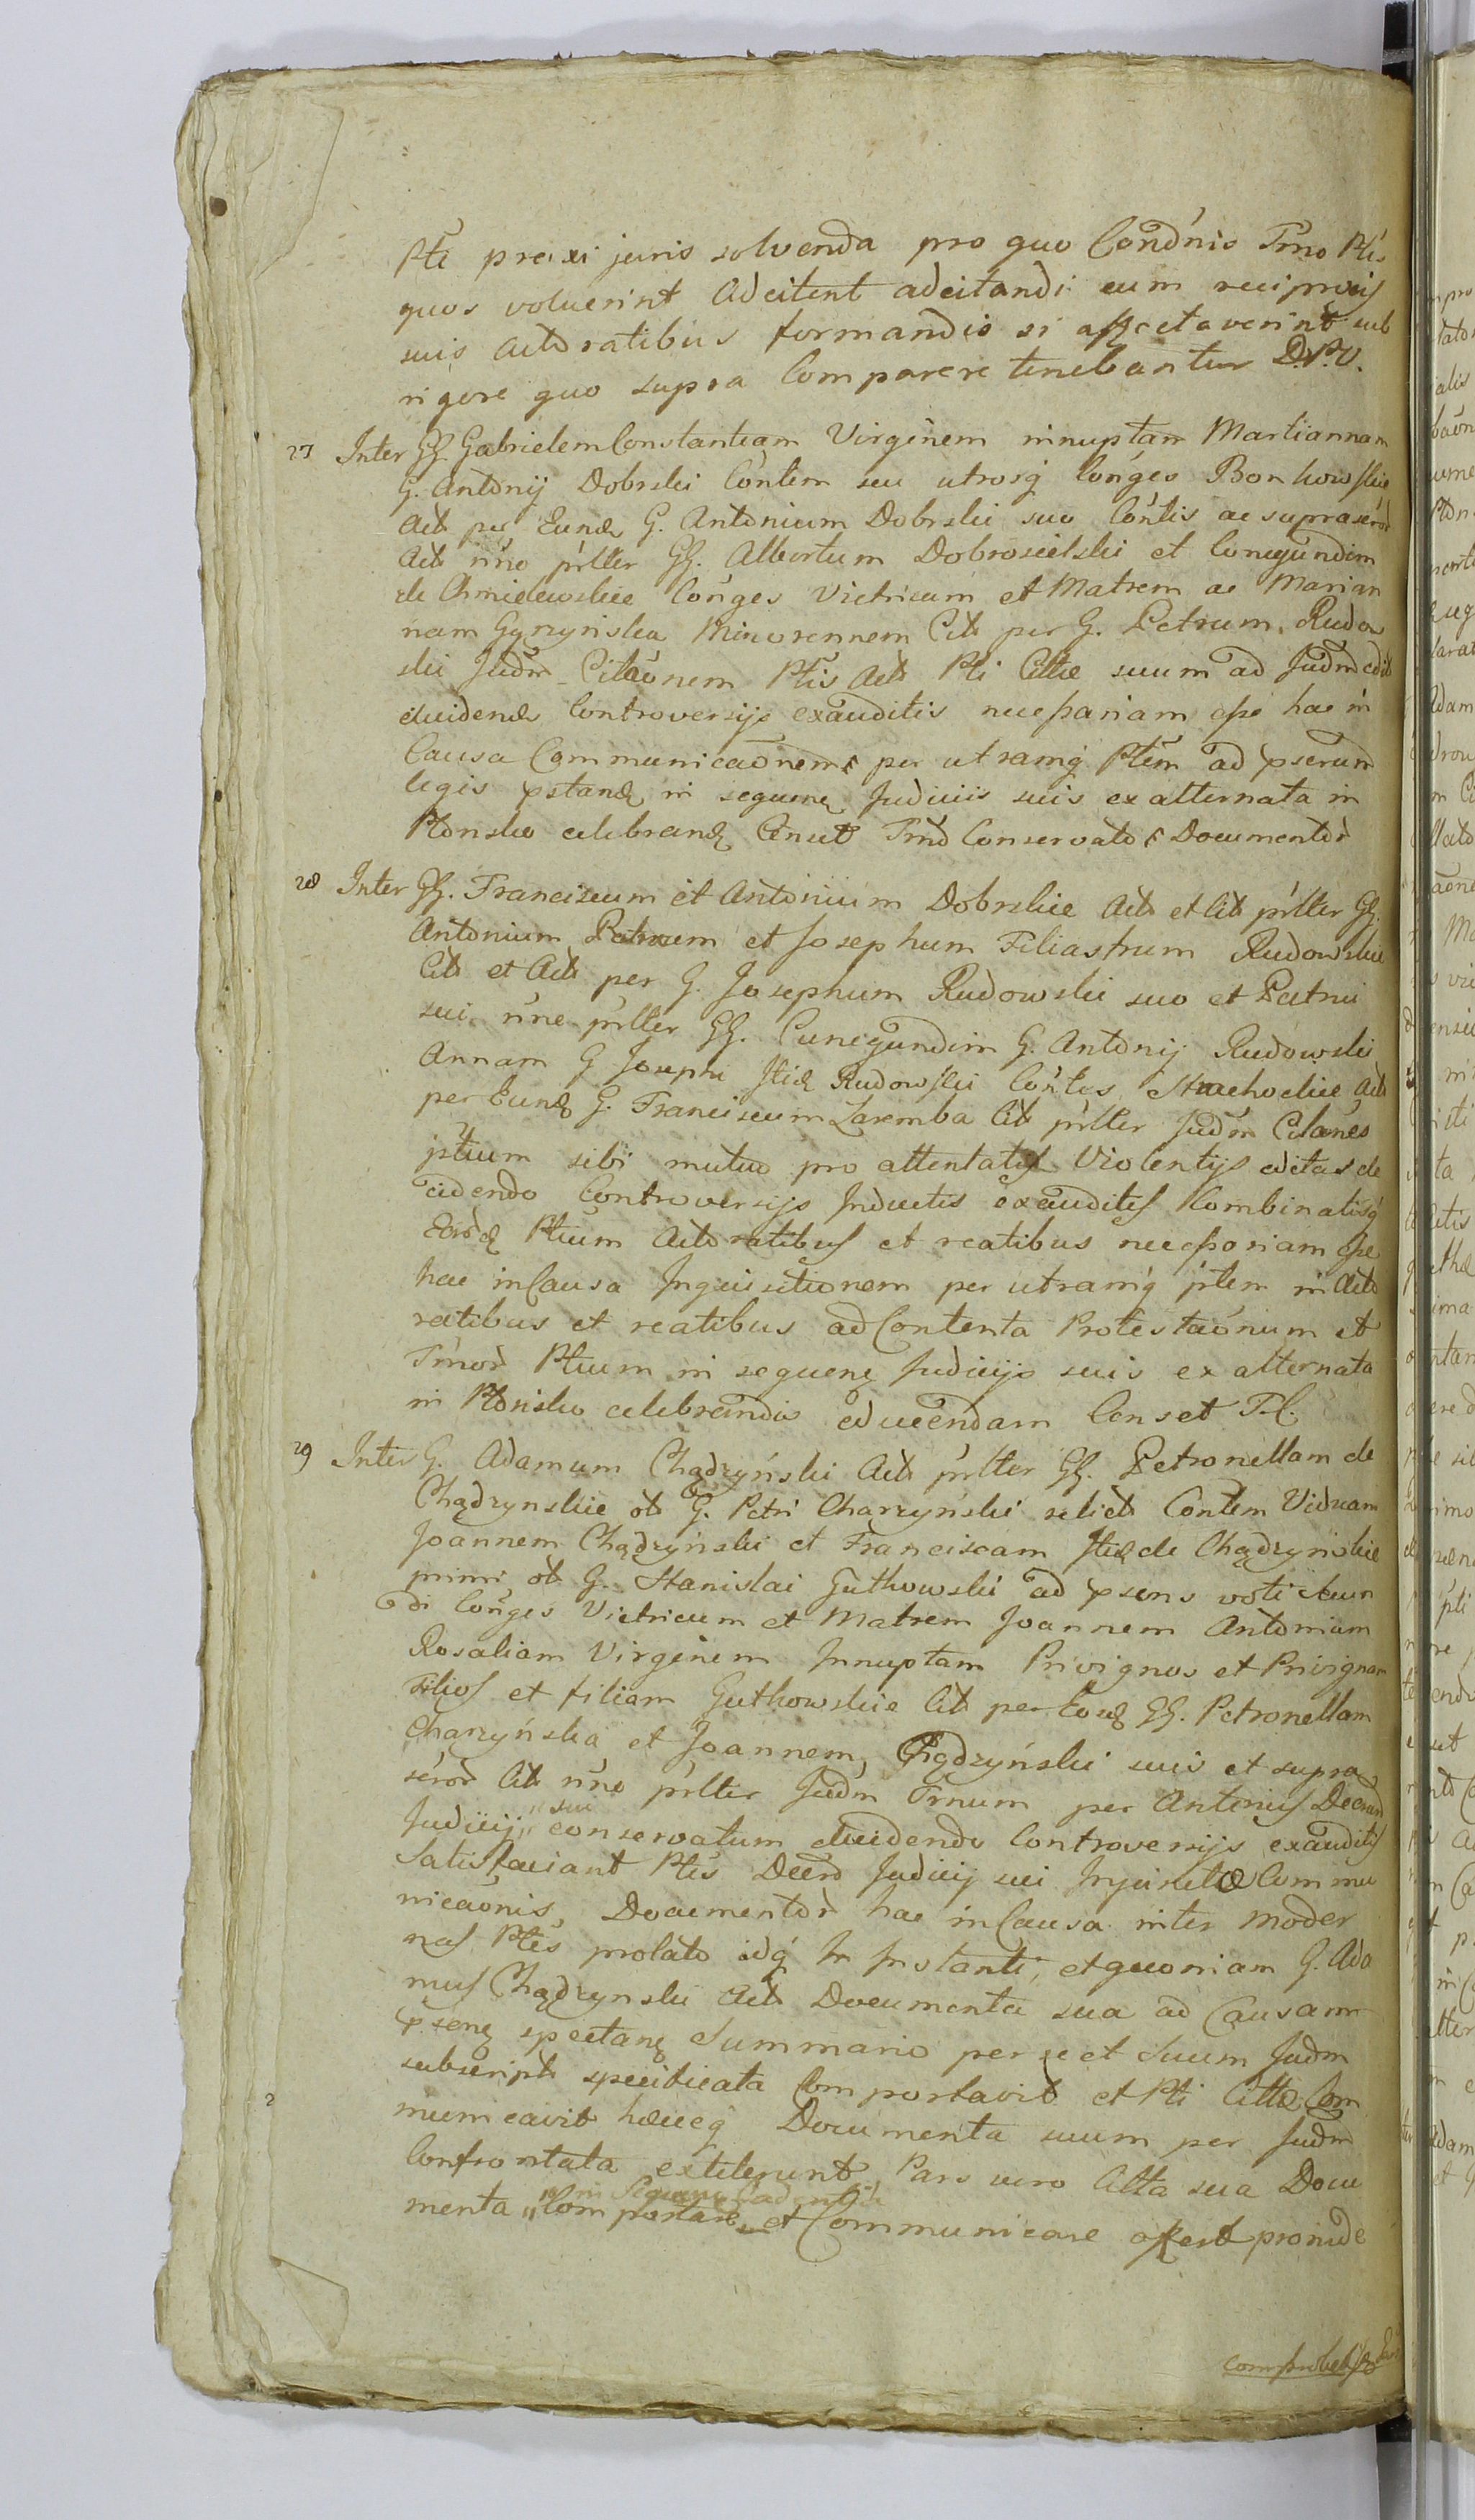 Pti prasi juris solvenda pro quo Condnis Trno Ptis
quos voluerint Adcitent adcitandi cum reciprocis
suis Actoratibus formandis si affectaverint sub
rigore quo supra Comparere tenebantur D.P.V.
27 Inter GG Gabrielem Constantiam Virginem innuptam Mariannam
G. Antonij Dobrski Contem seu utrosq Conges Bonkowskie
Act per Eund G. Antonium Dobrski suo Contis ac supraser
Act nne prlter GG. Albertum Dobrosielski et Conegundim
de Chmielewskie Conges Victricum et Matrem ac Marian
nam Gyzynska Minorennem Cit per G. Petrum Rudow
ski Judm Citaonem Ptis Act Pti Cittae suum ad Judm edit
eluidend Controversijs exauditis necessariam esse hac in
Causa Communicaonem per utramq Ptem ad pserum
legis pstand in sequen Judiciis suis ex alternata in
Plonsko celebrand Censet Trno Conservato Documentor
28 Inter GG. Franciscum et Antonium Dobrskie Act et Cit prlter GG.
Antonium Patruum et Josephum Filiastrum Rudowskie
Cit et Act per G. Josephum Rudowski suo et Patrui
sui nne prlter GG. Cunegundim G. Antonij Rudowski
Annam G Josephi Itid Rudowski Contes Strachockie Act
per Eund G. Franciscum Zaremba Cit prlter Judm Citanes
ptium sibi mutuo pro attentatis Violentijs editas de
cidendo Controversijs Inductis exauditis Combinatisq
Eord Ptium Actoratibus et reatibus necessariam esse
hac in Causa Inquisitionem per utramq ptem in Acto
ratibus et reatibus ad Contenta Protestaonum et
Trnor Ptium in sequen Judicijs suis ex alternata
in Plonsko celebrandis educendam Censet T.C.
29 Inter G. Adamum Chądzyński Act prlter GG. Petronellam de
Chądzynskie ol G. Petri Charzyński relict Contem Viduam
Joannem Chądzyński et Franciscam Itid de Chądzyńskie
primi ol G. Stanislai Gutkowski ad psens voti secun
di Conges Victricum et Matrem Joannem Antonium
Rosaliam Virginem Innuptam Privignos et Privignam
Filios et filiam Gutkowskie Cit per Eosd GG. Petronellam
Charzyńska et Joannem Chądzyński suis et supra
scror Cit nne prlter Judm Trnum per Anterius Decrum
Judicij sui conservatum eluidendo Controversijs exauditis
Satisfaciant Ptes Decro Judicij sui Injunctae Commu
nicaonis Documentor hac in Causa inter moder
nas Ptes prolato idq In Instanti, et quoniam G. Ada
mus Chądzynski Act Documenta sua ad Causam
psen spectan Summario per se et Suum Judm
subscript specificata Comportavit et Pti Cittae Com
municavit haecq Documenta suum per Judm
Confrontata extiterunt Pars vero Citta sua Docu
menta Comportare et Communicare offert proinde